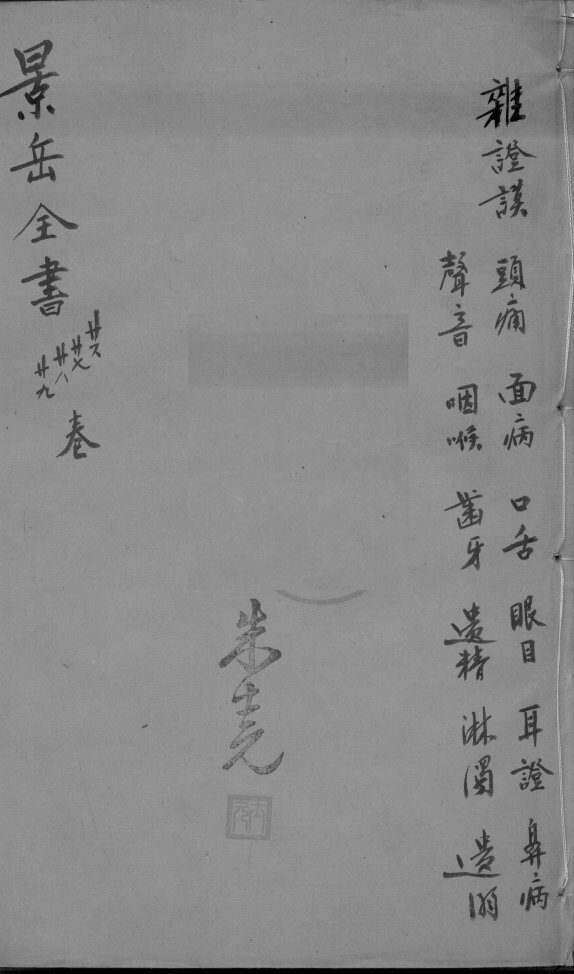 雜證謨
頭痛 面病 口舌 眼目 耳證 鼻病
聲音 咽喉 齒牙 遺精 淋濁 遺溺
朱
景岳全書 廿六 廿七 廿八 廿九 卷